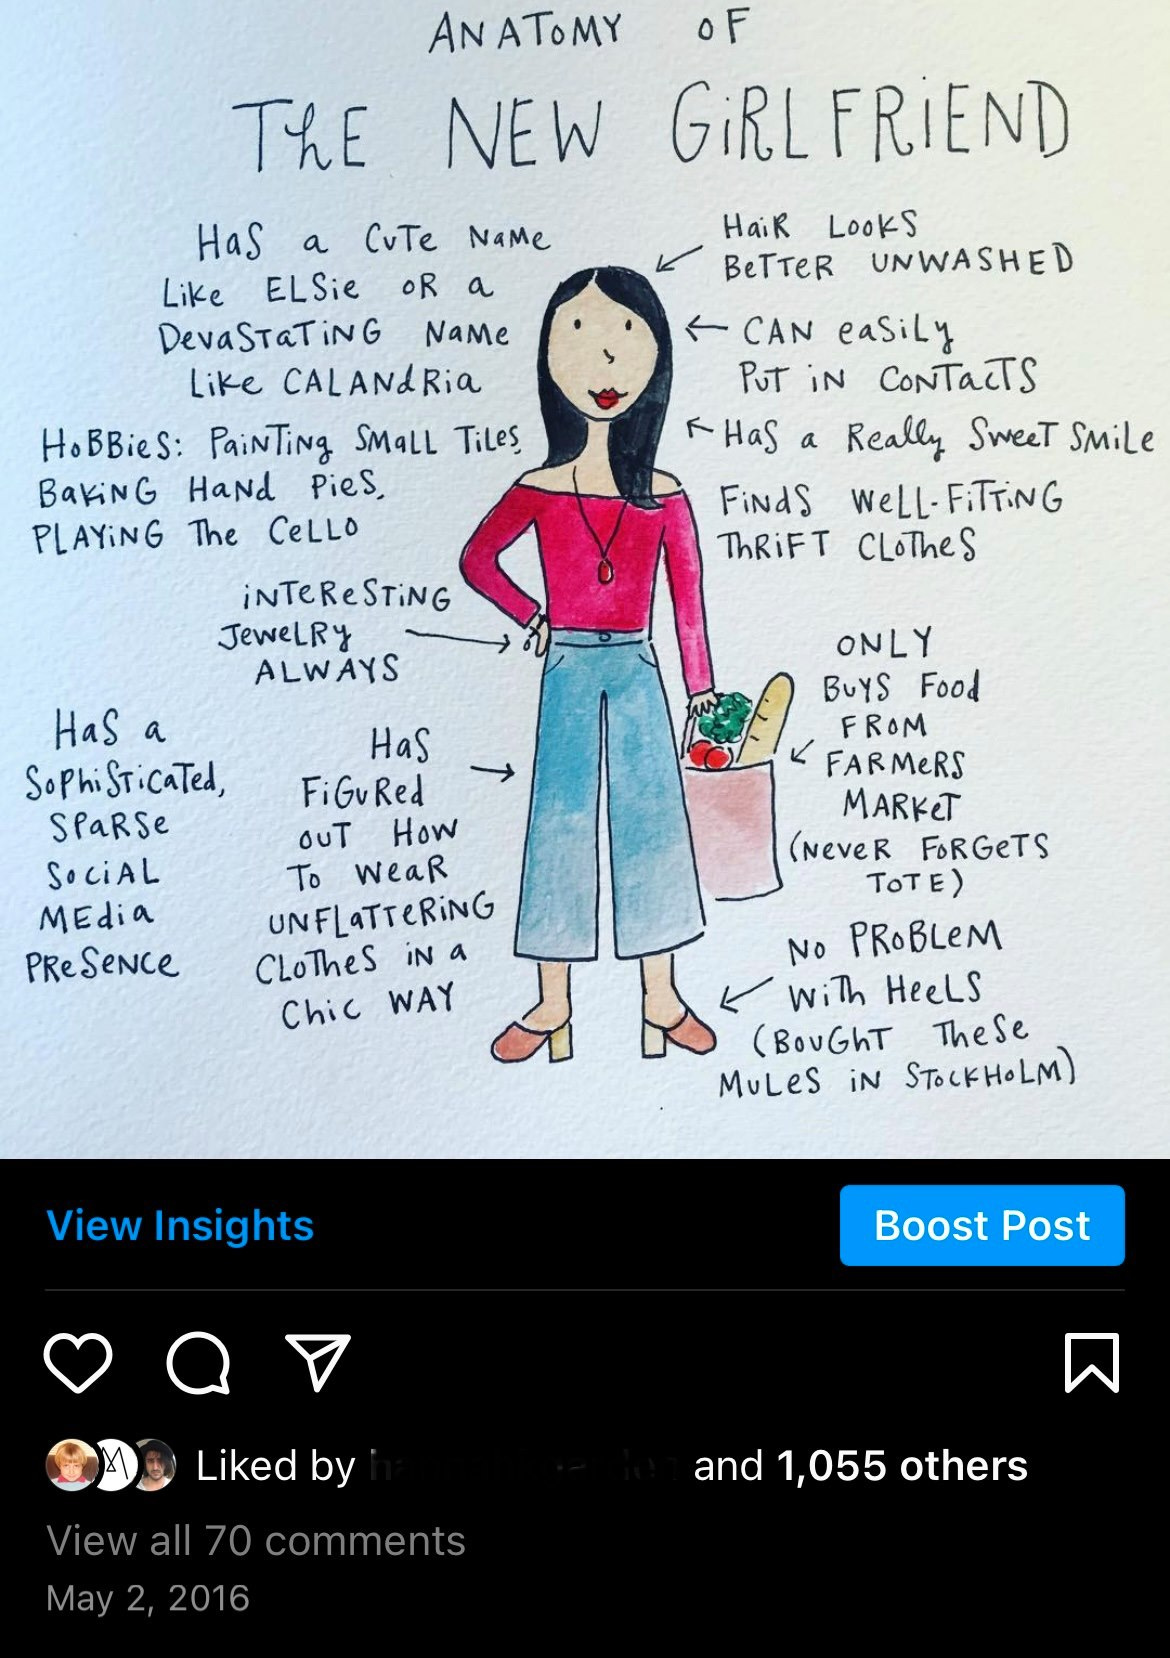 ANATOMY OF
THE NEW GIRLFRIEND
HAS A CUTE NAME
LIKE ELSIE OR A
DEVASTATING NAME
LIKE CALANDRIA
HOBBIES: PAINTING SMALL TILES,
BAKING HAND PIES,
PLAYING THE CELLO
INTERESTING
JEWELRY
ALWAYS
HAS A
SOPHISTICATED,
SPARSE
SOCIAL
MEDIA
PRESENCE
HAS
FIGURED
OUT HOW
TO WEAR
UNFLATTERING
CLOTHES IN A
CHIC WAY
HAIR LOOKS
BETTER UNWASHED
CAN EASILY
PUT IN CONTACTS
HAS A REALLY SWEET SMILE
FINDS WELL-FITTING
THRIFT CLOTHES
ONLY
BUYS FOOD
FROM
FARMERS
MARKET
(NEVER FORGETS
TOTE)
NO PROBLEM
WITH HEELS
(BOUGHT THESE
MULES IN STOCKHOLM)
View Insights
Boost Post
Liked by and 1,055 others
View all 70 comments
May 2, 2016